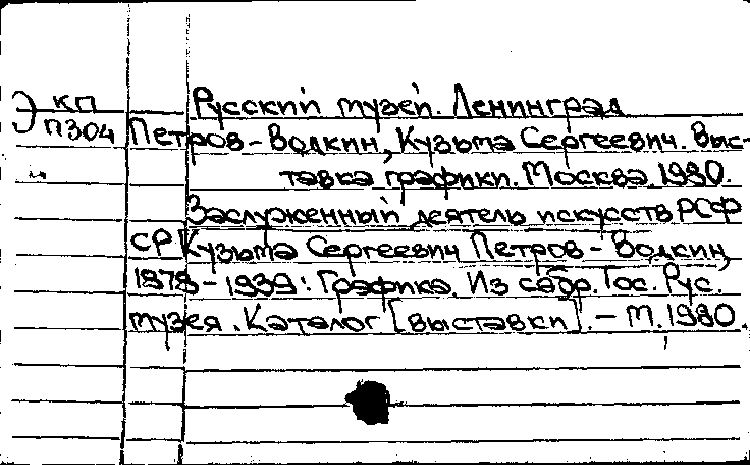 Э КП Русский музей. Ленинград
П304 Петров-Водкин, Кузьма Сергеевич. Выс-
тавка графики. Москва. 1980.
Заслуженный деятель искусств РСФ
СР Кузьма Сергеевич Петров-Водкин,
1878-1939: Графика. Из собр. Гос. Рус.
музея. Каталог [выставки]. - М. 1980.